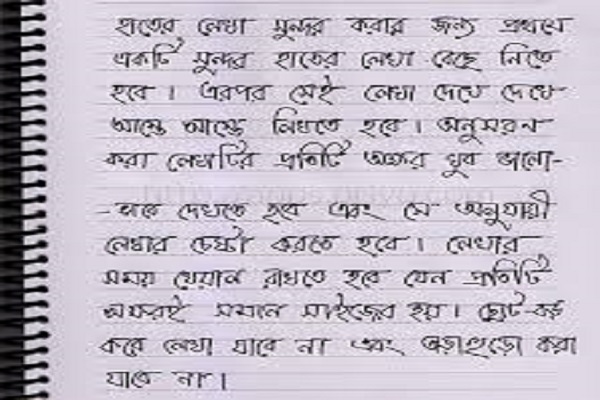 হাতের লেখা সুন্দর করার জন্য প্রথমে
একটি সুন্দর হাতের লেখা বেছে নিতে
হবে। এরপর সেই লেখা দেখে দেখে
আস্তে আস্তে লিখতে হবে। অনুসরন
করা লেখাটির প্রতিটি অক্ষর খুব ভালো-
-ভাবে দেখতে হবে এবং সে অনুযায়ী
লেখার চেষ্টা করতে হবে। লেখার
সময় খেয়াল রাখতে হবে যেন প্রতিটি
অক্ষরই সমান সাইজের হয়। ছোট-বড়
করে লেখা যাবে না এবং তাড়াহুড়ো করা
যাবে না।